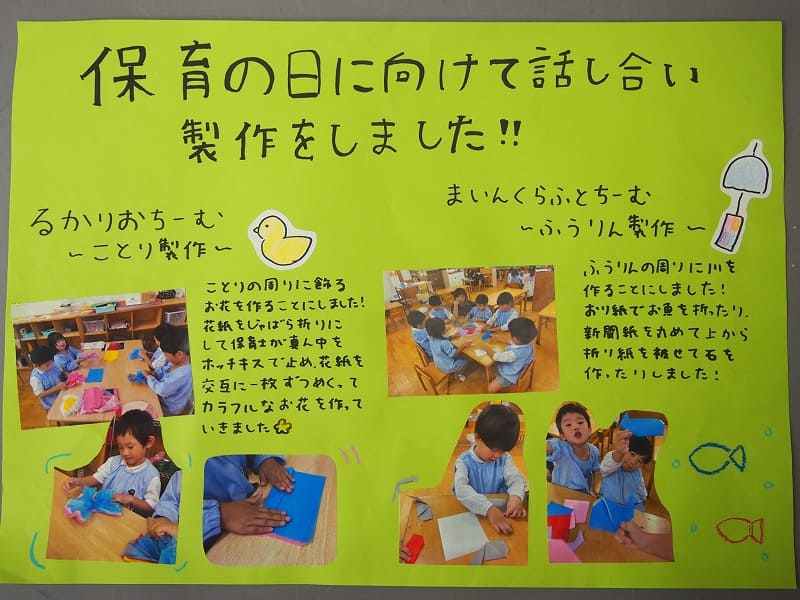 保育の日に向けて話し合い
製作をしました!!
るかりおちーむ
～ことり製作～
ことりの周りに飾る
お花を作ることにしました!
花紙をじゃばら折りに
して保育士が真ん中を
ホッチキスで止め、花紙を
交互に一枚ずつめくって
カラフルなお花を作って
いきました
まいんくらふとちーむ
～ふうりん製作～
ふうりんの周りに川を
作ることにしました!
おり紙でお魚を折ったり、
新聞紙を丸めて上から
折り紙を被せて石を
作ったりしました!